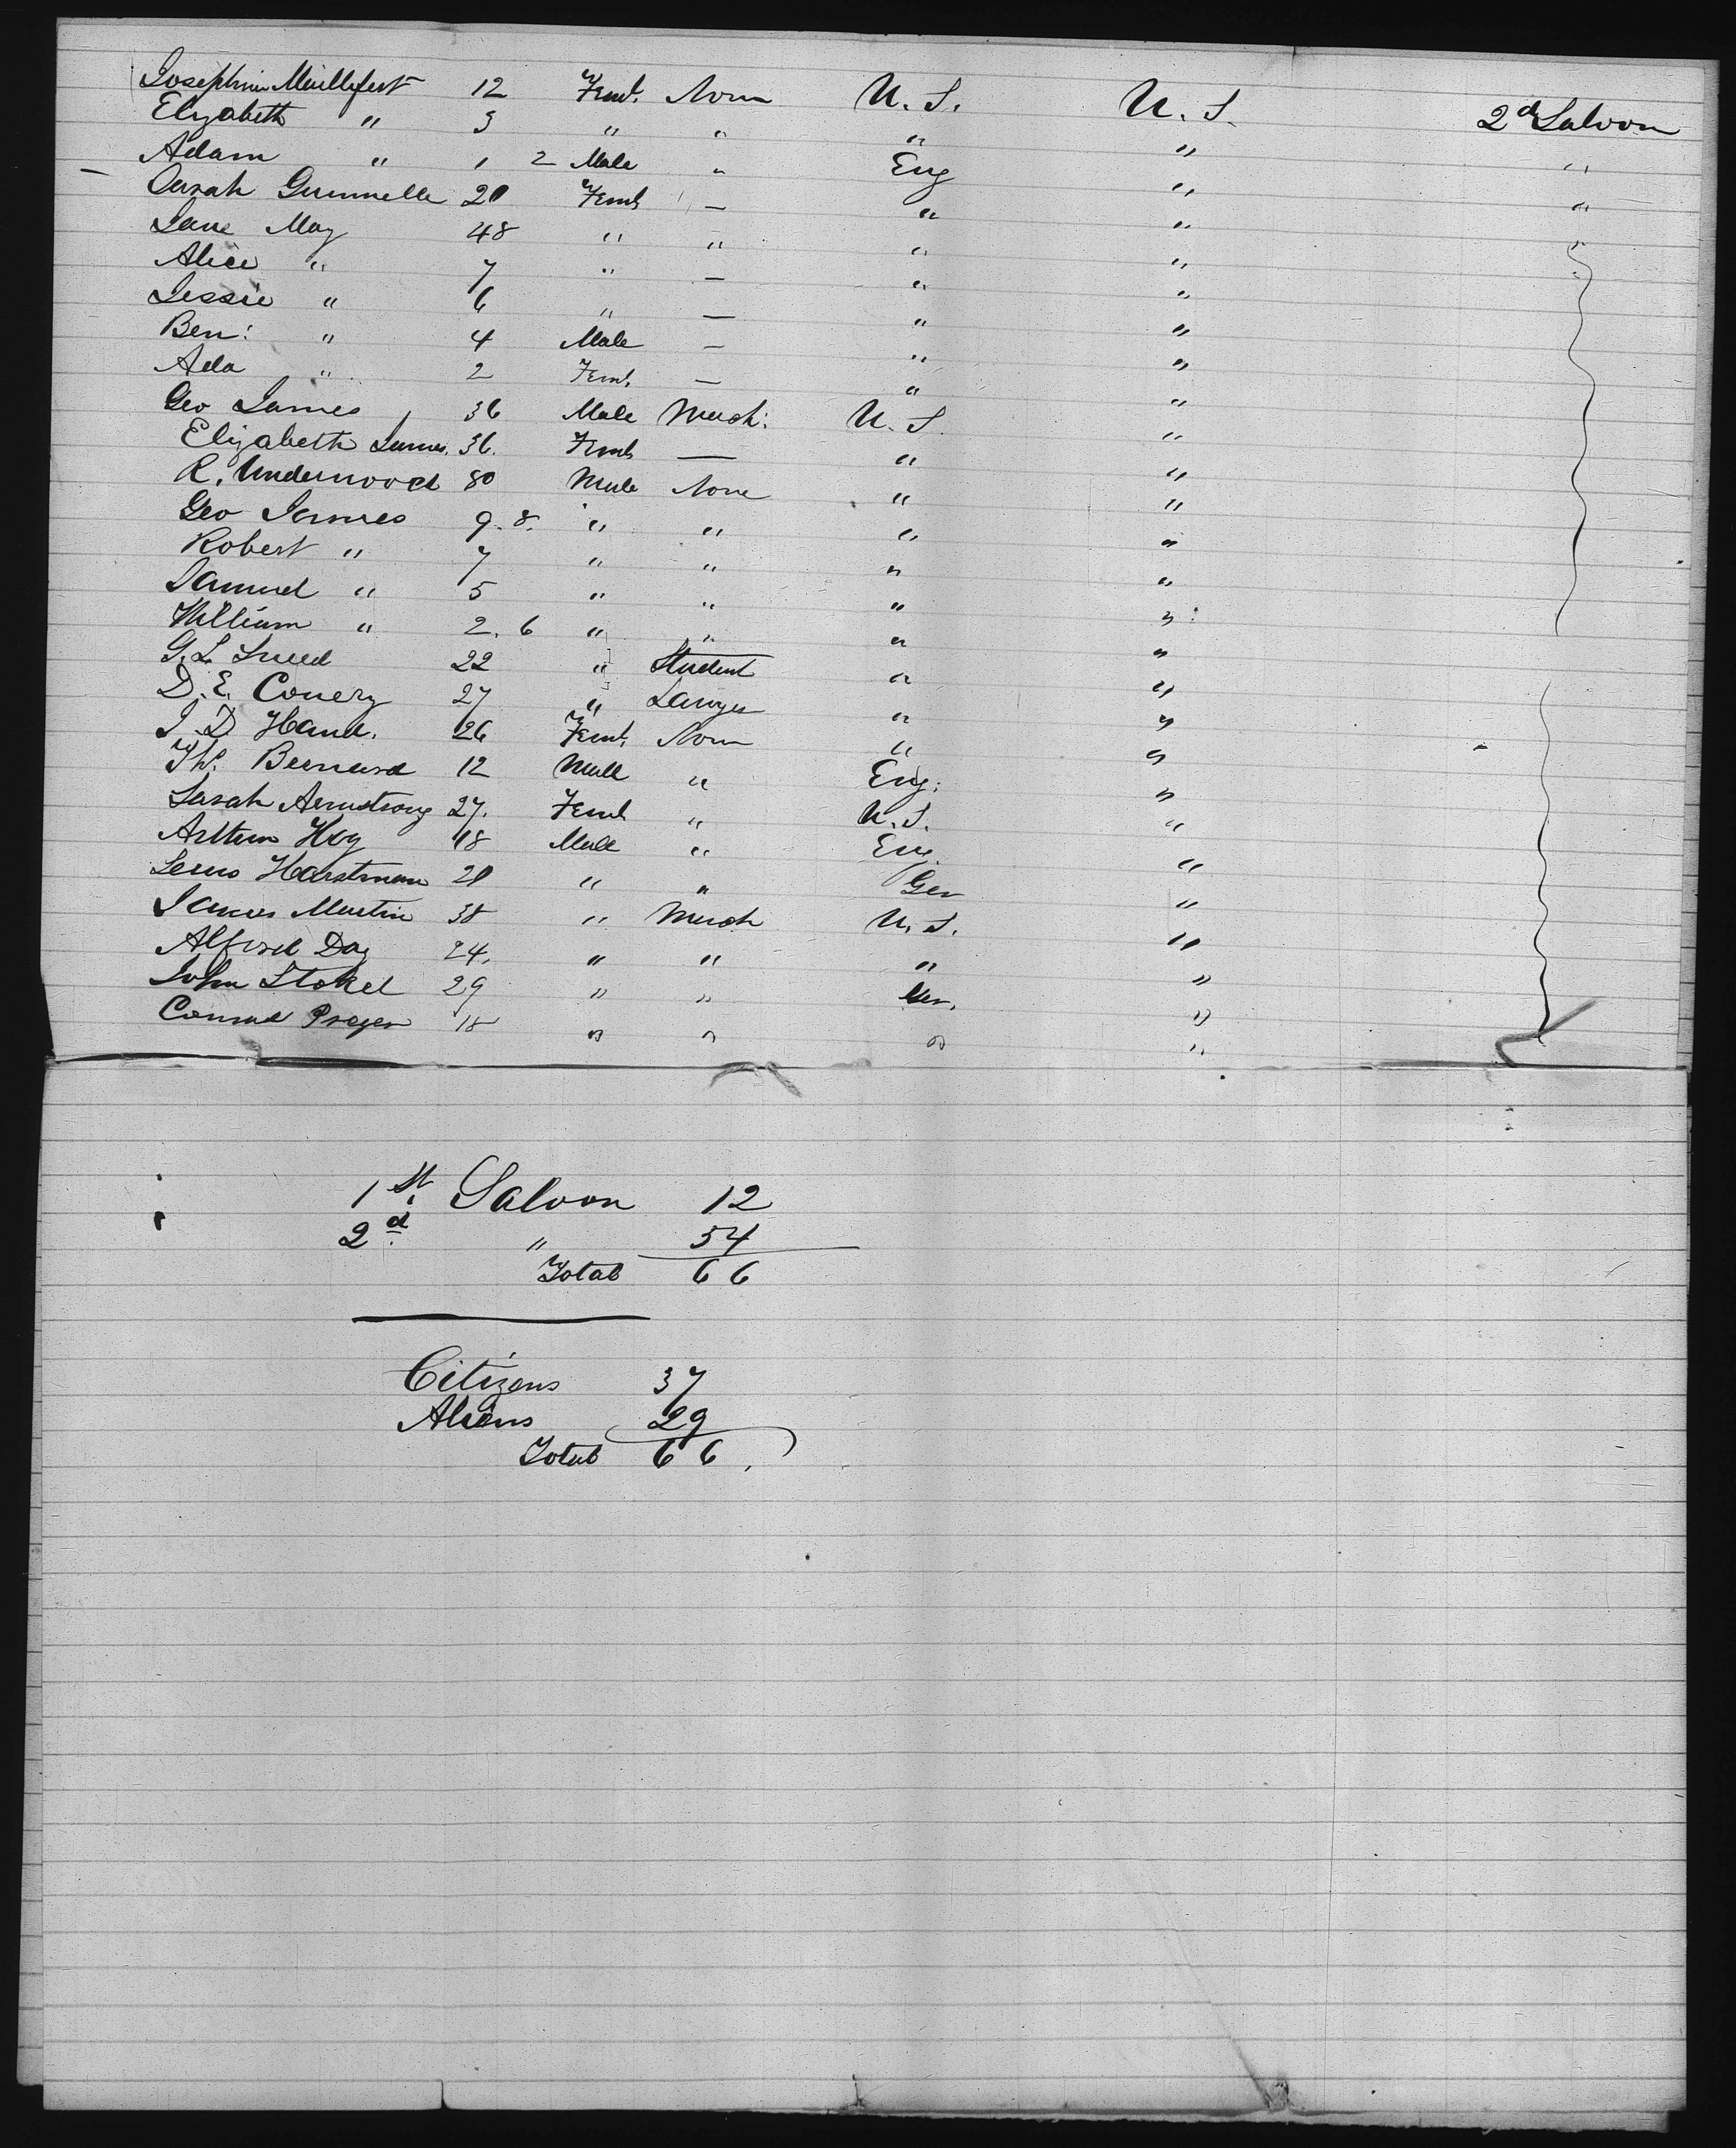 Josephine Muillefert 12 Feml. None U. S. U. S. 2d Saloon
Elizabeth " 3 " " " " "
Adam " 1 2 Male " Eng " "
Sarah Gummelle 20 Feml — " "
Jane May 48 " " " "
Alice " 7 " — " "
Jessie " 6 " — " "
Ben: " 4 Male — " "
Ada " 2 Feml. — " "
Geo James 36 Male Merch: U. S. "
Elizabeth James. 36. Feml — " "
R. Underwood 80 Male None " "
Geo James 9. 8. " " " "
Robert " 7 " " " "
Samuel " 5 " " " "
William " 2. 6 " " " "
G. L. Sneed 22 " Student " "
D. E. Conery 27 " Lawyer " "
J. D Hand. 26 Feml. None " "
Th. Bernard 12 Male " Eng. "
Sarah Armstrong 27. Feml " U. S. "
Arthur Hoy 18 Male " Eng. "
Louis Horstman 20 " " Ger "
James Martin 38 " Merch U. S. "
Alfred Day 24. " " " "
John Stokel 29 " " Ger. "
Conrad Prager 18 " " " "
1st Saloon 12
2d " 54
Total 66
Citizens 37
Aliens 29
Total 66.